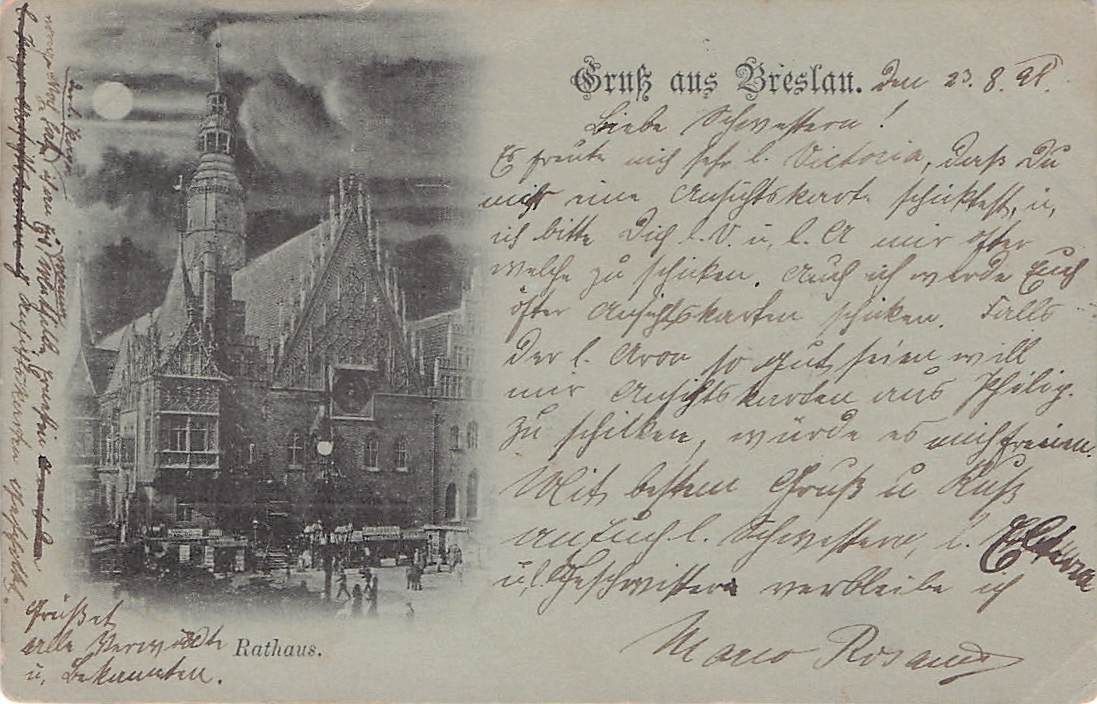 Gruß aus Breslau. Den 23. 8. 98.
Liebe Schwestern!
Es freute mich sehr l. Victoria, daß Du
mir eine Ansichtskarte schicktest, u.
ich bitte Dich l. V. u. l. A mir öfter
welche zu schicken. Auch ich werde Euch
öfter Ansichtskarten schicken. Falls
der l. Aron so gut sein will
mir Ansichtskarten aus Philip.
zu schicken, würde es mich freuen.
Mit bestem Gruß u Kuß
an Euch l. Schwestern, l. Eltern
u. Geschwister verbleibe ich
Marco Rosanes
Grüßet
alle Verwandte
u. Bekannten.
Rathaus.
Ansichtskarten